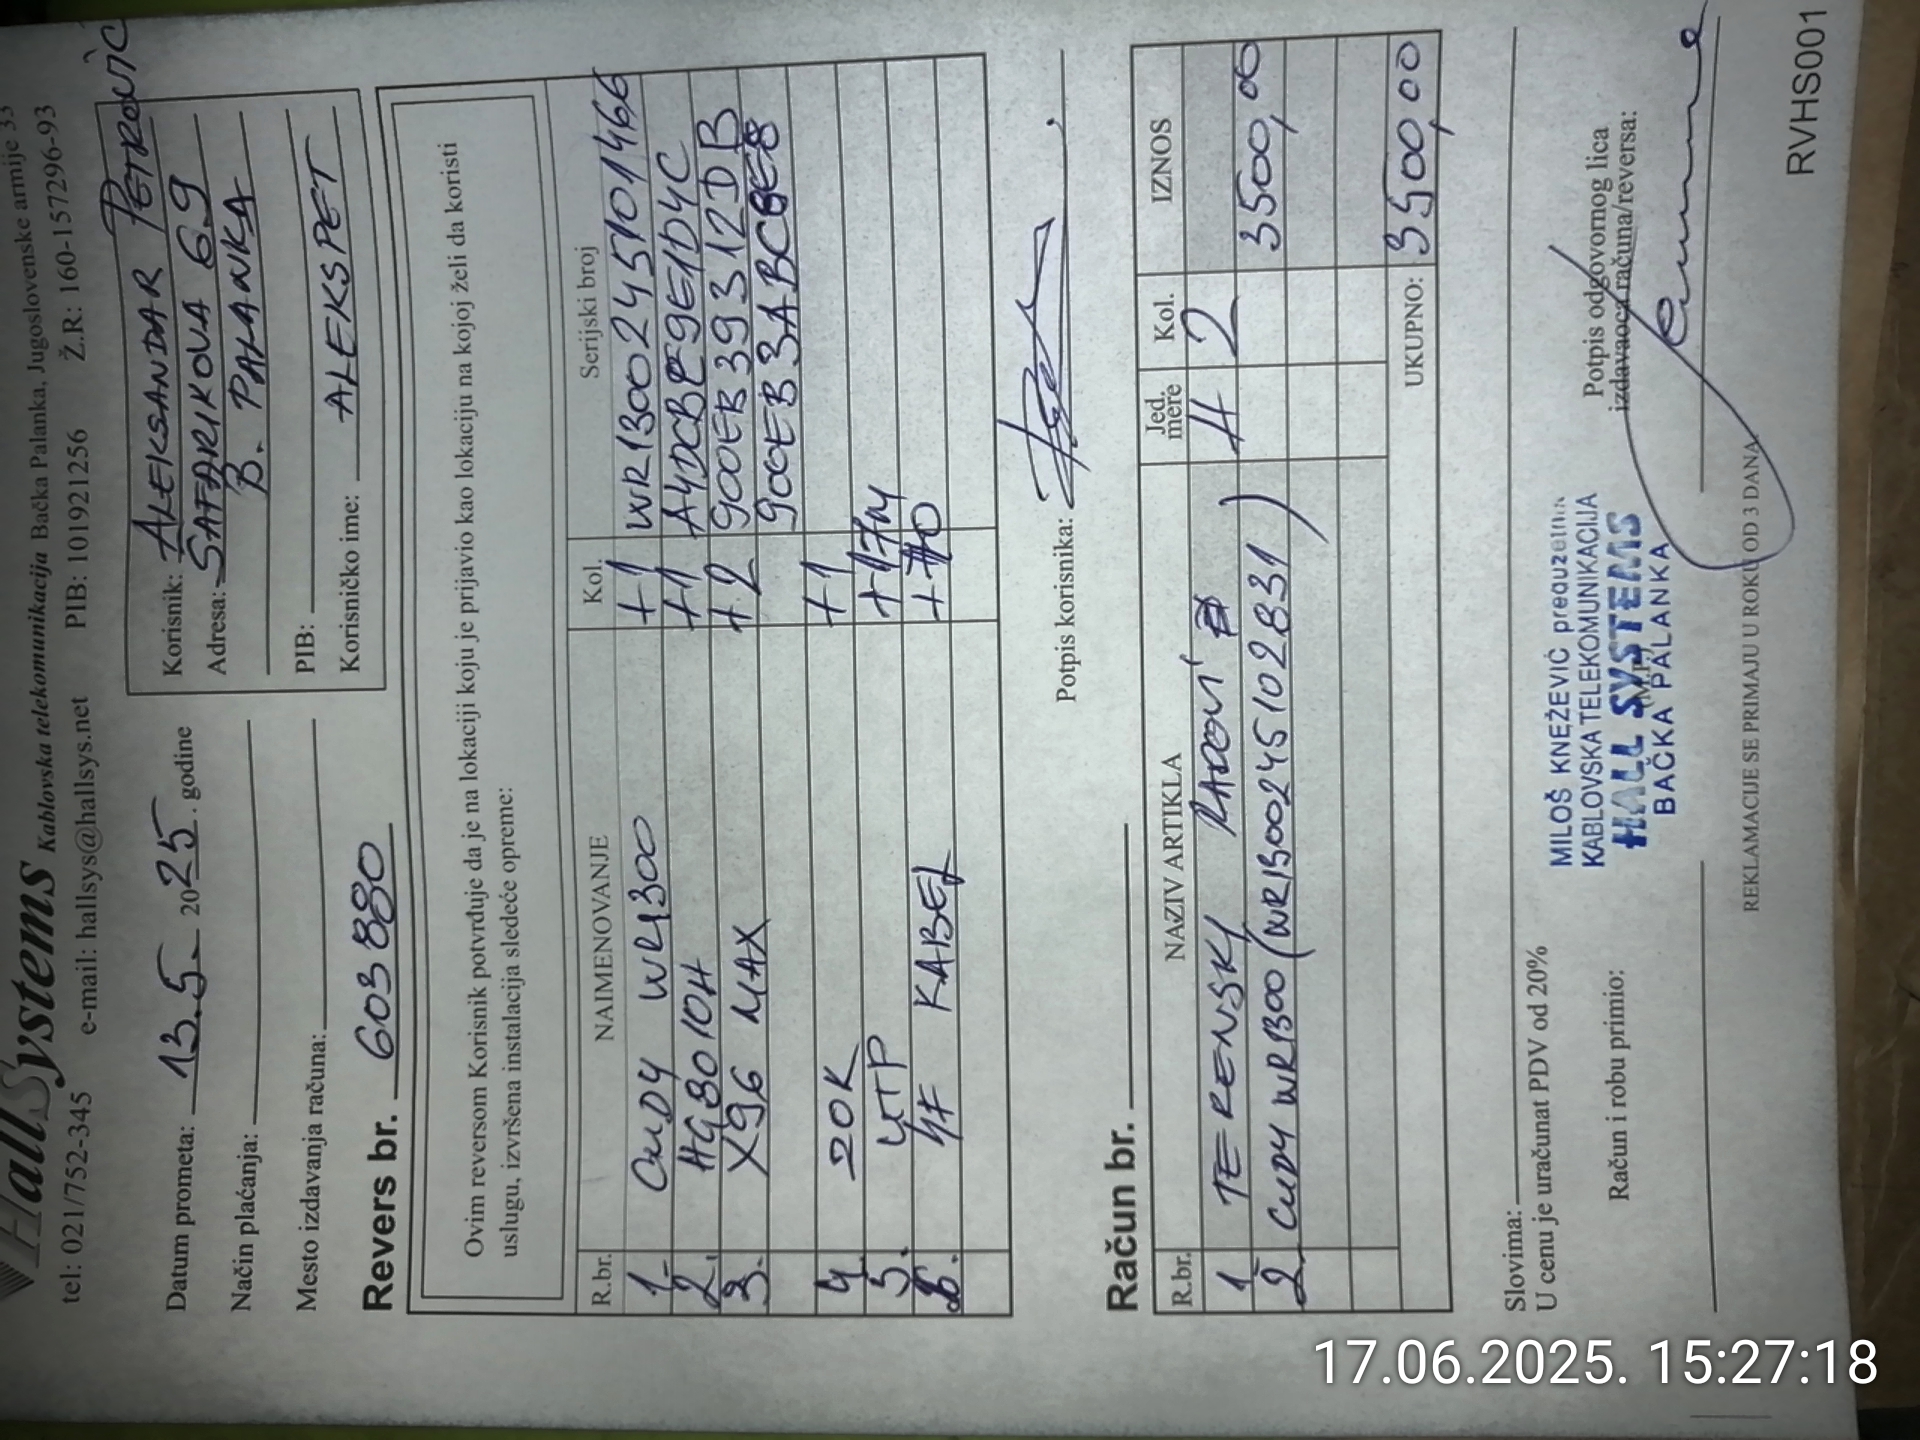 HallSystems Kablovska telekomunikacija Bačka Palanka, Jugoslovenske armije 33
tel: 021/752-345 e-mail: hallsys@hallsys.net PIB: 101921256 Ž.R: 160-157296-93
Datum prometa: 13.5. 2025. godine
Način plaćanja:
Mesto izdavanja računa:
Korisnik: ALEKSANDAR PETROVIĆ
Adresa: SAFARIKOVA 69
B. PALANKA
PIB:
Korisničko ime: ALEKSPET
Revers br. 603880
Ovim reversom Korisnik potvrđuje da je na lokaciji koju je prijavio kao lokaciju na kojoj želi da koristi
uslugu, izvršena instalacija sledeće opreme:
R.br. NAIMENOVANJE Kol. Serijski broj
1. CUDY WR1300 +1 WR1300245101466
2. HG8010H +1
3. X96 MAX +2 900EB39312DB
4. 20K +1
5. UTP +17m
6. KABEL
Potpis korisnika:
Račun br.
R.br. NAZIV ARTIKLA Jed. mere Kol. IZNOS
1 TERENSKI RADOVI H 2 3500,00
2. CUDY WR1300 (WR1300245102831)
UKUPNO: 3500,00
Slovima:
U cenu je uračunat PDV od 20%
Račun i robu primio:
Potpis odgovornog lica
izdavaoca računa/reversa:
MILOŠ KNEŽEVIĆ preduzetnik
KABLOVSKA TELEKOMUNIKACIJA
HALL SYSTEMS
BAČKA PALANKA
REKLAMACIJE SE PRIMAJU U ROKU OD 3 DANA
RVHS001
17.06.2025. 15:27:18